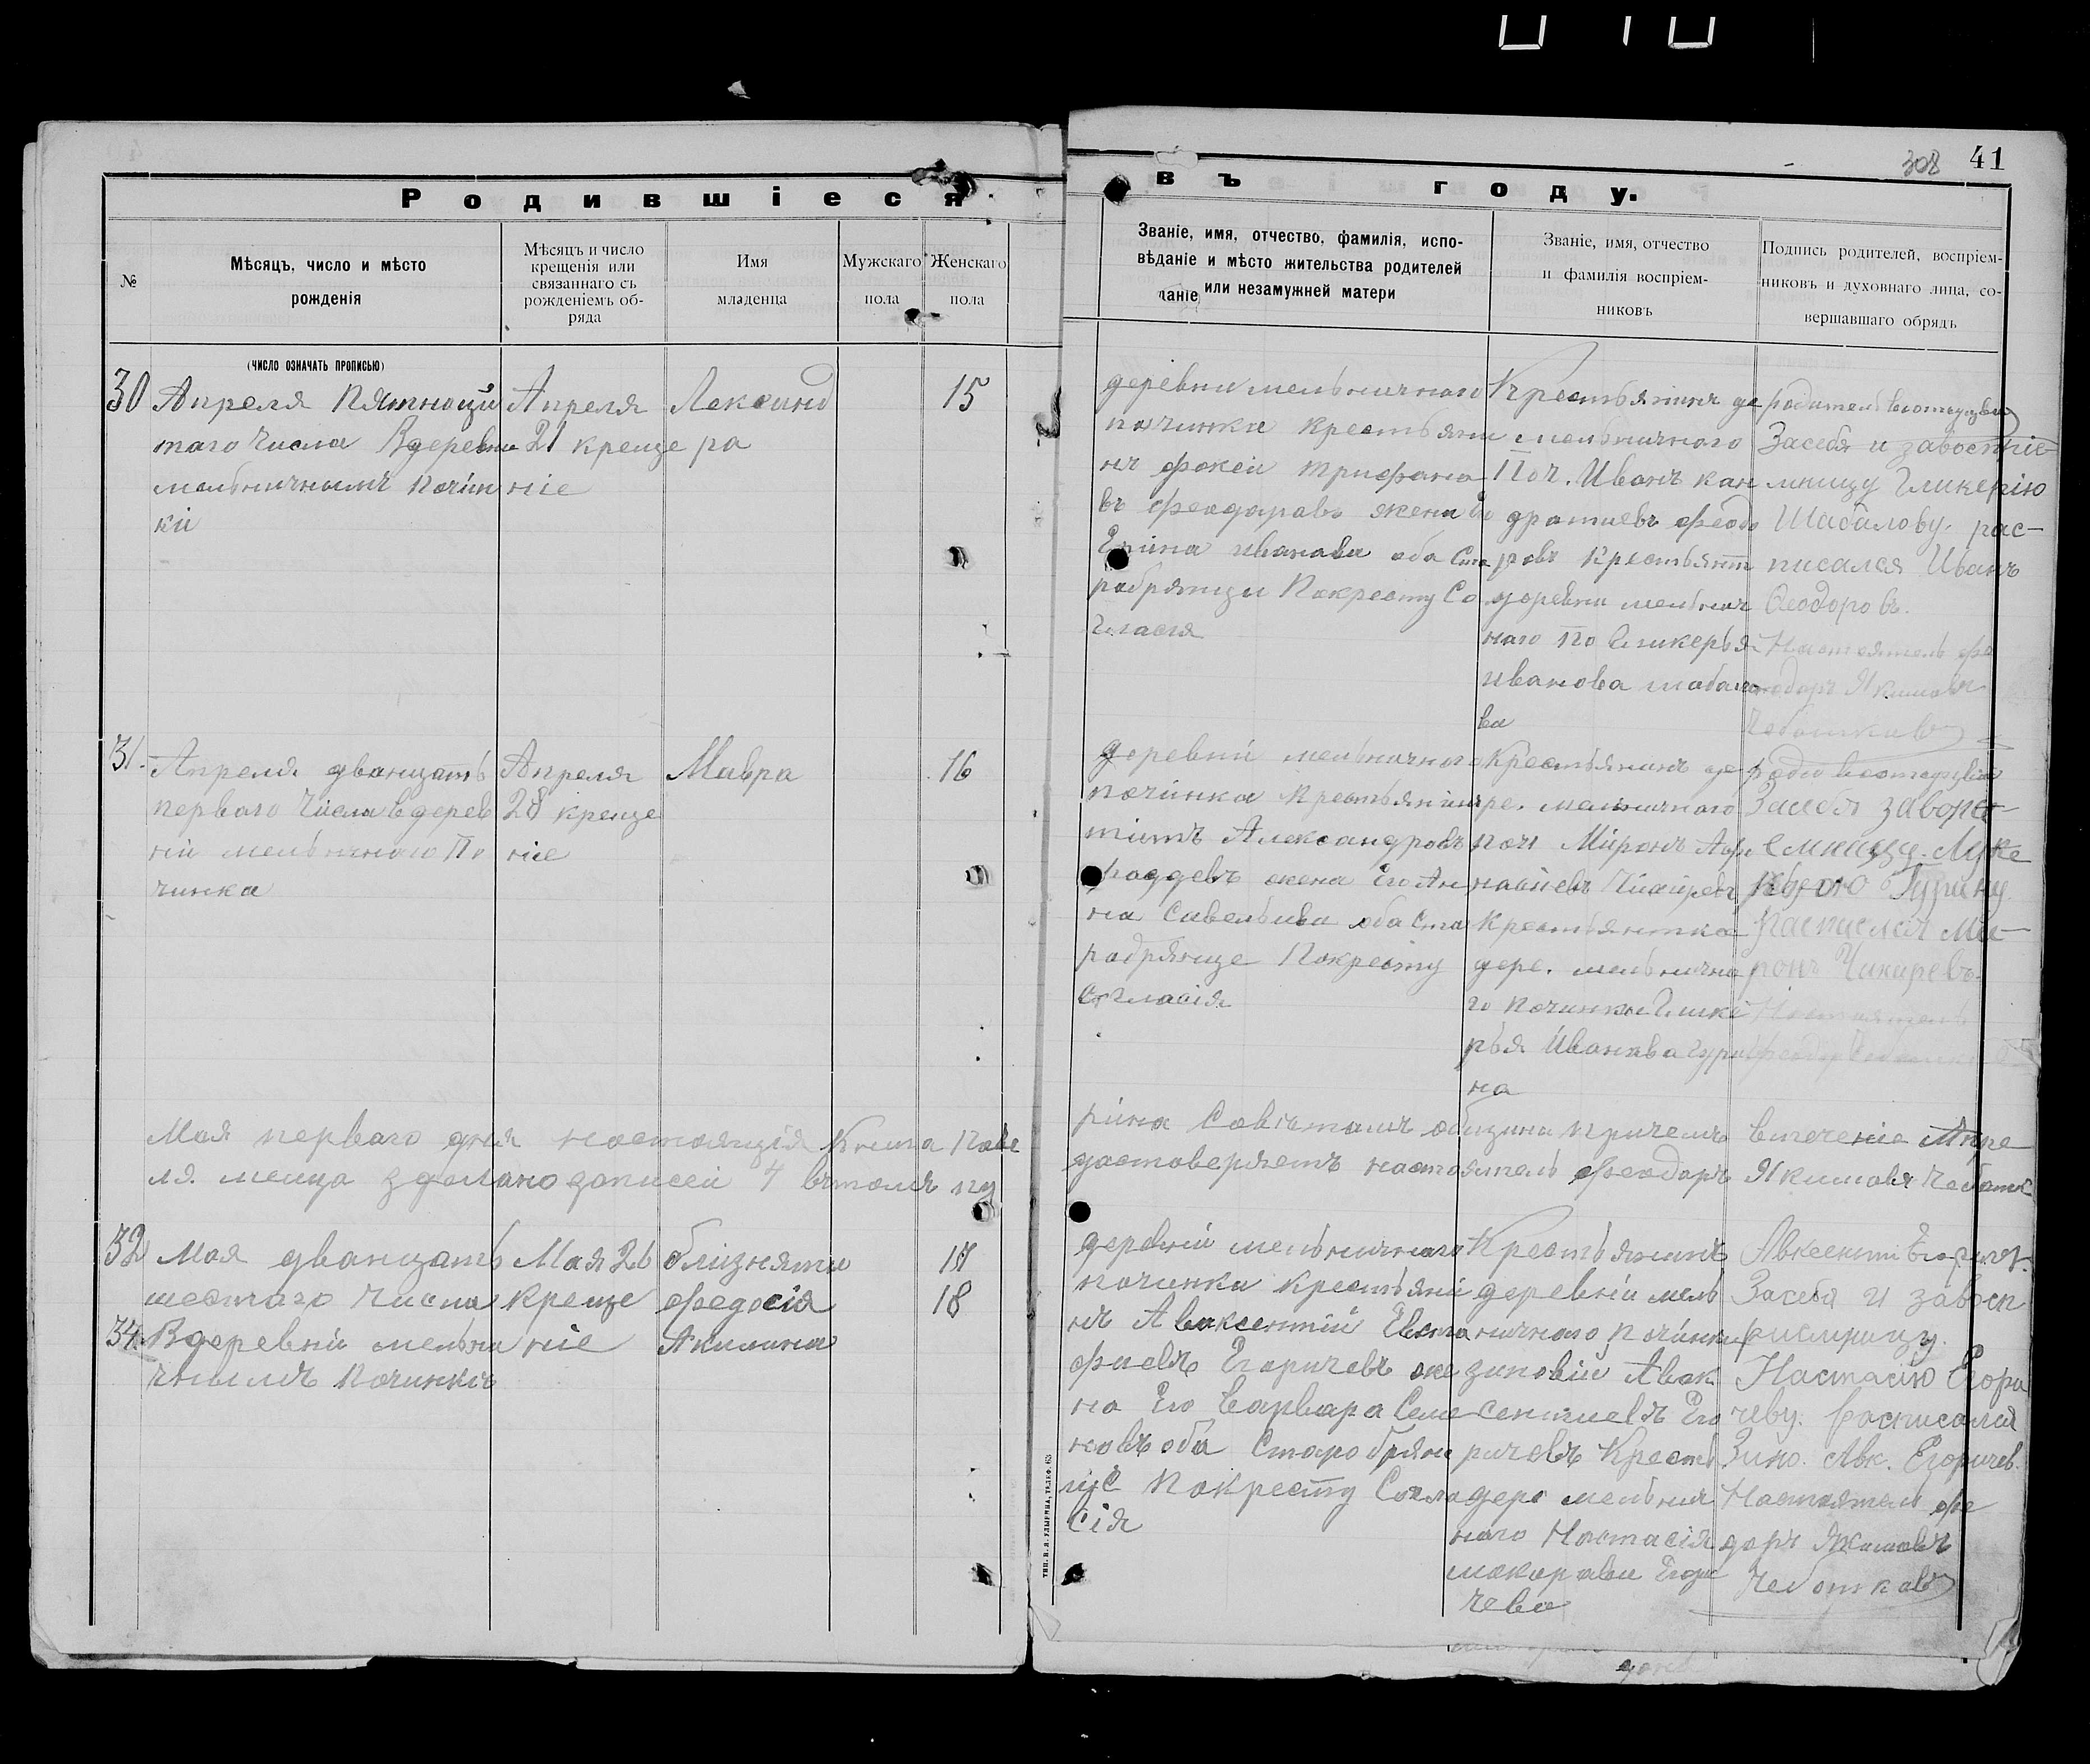 308 41
Родившіеся
въ году.
№
Мѣсяцъ, число и мѣсто
рожденія
Мѣсяцъ и число
крещенія или
связаннаго съ
рожденіемъ об-
ряда
Имя
младенца
Мужскаго
пола
Женскаго
пола
Званіе, имя, отчество, фамилія, испо-
вѣданіе и мѣсто жительства родителей
или незамужней матери
Званіе, имя, отчество
и фамилія воспріем-
никовъ
Подпись родителей, воспріем-
никовъ и духовнаго лица, со-
вершавшаго обрядъ
(число означать прописью)
30
Апреля Пятноци
таго Числа Вдеревни
мельничнымъ Почин
ки
Апреля
21 креще
ніе
Лександ
ра
15
деревни мельничного
починка крестьяни
нъ фокеи Трифано
въ феодаровъ жена
иванова оба Ста
робрятци Покресту Со
гласія
Крестьянинъ де
мельничного
Поч. Иванъ кан
дратиевъ феодо
ровъ Крестьянт
деревни мельнич
наго По Гликерья
иванова шабало
ва
родитель
Засебя и завоспріе
мницу Гликерію
Шабалову. рас-
писался Иванъ
Ѳеодоровъ.
Настоятель фе
одоръ Якимовъ
Чеботковъ
31.
Апреля. дванцать
перваго Числа вдерев
ніи мельничного По
чинка
Апреля
28 креще
ніе
Мавра
16
деревни мельничного
починка крестьянин
титъ Александровъ
фаддевъ жена Его Ан
на Савельива оба Ста
робрянце Покресту
Согласія
Крестьянинъ де
ре. мельничного
поч Миронъ Аф
Крестьянтка
дере. мельнично
го починка Глике
рья Иванова Гури
на
Засебя заворс-
емницу
Гурину
Расписался Ми-
ронъ Чикиревъ.
Настоятель
Мая перваго дня настоящія Книга Пове
рина Савѣтамъ общины причемъ втечение Апре
ля. месица зделано записей 4 втомъ
удостоверяетъ настоятель феодоръ Якимовъ Чеботк
32
34.
Мая дванцать
шестаго Числа
Вдеревни мельни
чнымъ Починкѣ
Мая 26
Креще
ніе
близняти
Федосія
Акилина
17
18
деревніи мельничнаго
починка крестьяни
нъ Аваксентий Евста
фиевъ Егоричевъ же
на Его Варвара Семе
новъ оба Старобрян
це Покресту Согла
сія
Крестьянинъ
деревніи мель
ничнаго Починка
зиновии Авак
сентиевъ Его
ричевъ Кресть
дере мельнич
наго Настасія
макарова Егори
чева
Авксенти
Засебя и завосп
риемницу.
Настасію Егори
чеву. расписался
Зино. Авк. Егоричев.
Настоятель фе
доръ Якимовъ
Чеботковъ